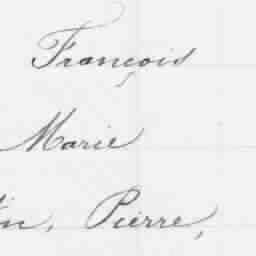 François
Marie
in, Pierre,